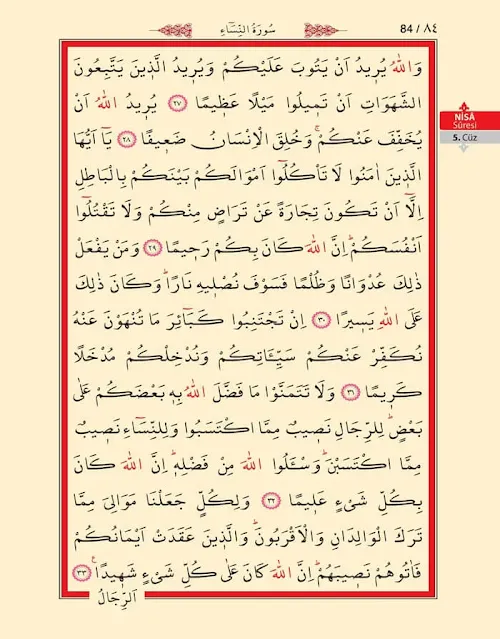 84 / ٨٤
سُورَةُ النِّسَٓاءِ
NİSÂ
Sûresi
5. Cüz
وَاللّٰهُ يُر۪يدُ اَنْ يَتُوبَ عَلَيْكُمْ وَيُر۪يدُ الَّذ۪ينَ يَتَّبِعُونَ
الشَّهَوَاتِ اَنْ تَم۪يلُوا مَيْلًا عَظ۪يمًا ﴿٢٧﴾ يُر۪يدُ اللّٰهُ اَنْ
يُخَفِّفَ عَنْكُمْۚ وَخُلِقَ الْاِنْسَانُ ضَع۪يفًا ﴿٢٨﴾ يَٓا اَيُّهَا
الَّذ۪ينَ اٰمَنُوا لَا تَأْكُلُٓوا اَمْوَالَكُمْ بَيْنَكُمْ بِالْبَاطِلِ
اِلَّٓا اَنْ تَكُونَ تِجَارَةً عَنْ تَرَاضٍ مِنْكُمْ وَلَا تَقْتُلُٓوا
اَنْفُسَكُمْۜ اِنَّ اللّٰهَ كَانَ بِكُمْ رَح۪يمًا ﴿٢٩﴾ وَمَنْ يَفْعَلْ
ذٰلِكَ عُدْوَانًا وَظُلْمًا فَسَوْفَ نُصْل۪يهِ نَارًاۜ وَكَانَ ذٰلِكَ
عَلَى اللّٰهِ يَس۪يرًا ﴿٣٠﴾ اِنْ تَجْتَنِبُوا كَبَٓائِرَ مَا تُنْهَوْنَ عَنْهُ
نُكَفِّرْ عَنْكُمْ سَيِّـَٔاتِكُمْ وَنُدْخِلْكُمْ مُدْخَلًا
كَر۪يمًا ﴿٣١﴾ وَلَا تَتَمَنَّوْا مَا فَضَّلَ اللّٰهُ بِه۪ بَعْضَكُمْ عَلٰى
بَعْضٍۜ لِلرِّجَالِ نَص۪يبٌ مِمَّا اكْتَسَبُواۜ وَلِلنِّسَٓاءِ نَص۪يبٌ
مِمَّا اكْتَسَبْنَۜ وَسْـَٔلُوا اللّٰهَ مِنْ فَضْلِه۪ۜ اِنَّ اللّٰهَ كَانَ
بِكُلِّ شَيْءٍ عَل۪يمًا ﴿٣٢﴾ وَلِكُلٍّ جَعَلْنَا مَوَالِيَ مِمَّا
تَرَكَ الْوَالِدَانِ وَالْاَقْرَبُونَۜ وَالَّذ۪ينَ عَقَدَتْ اَيْمَانُكُمْ
فَاٰتُوهُمْ نَص۪يبَهُمْۜ اِنَّ اللّٰهَ كَانَ عَلٰى كُلِّ شَيْءٍ شَه۪يدًا۟ ﴿٣٣﴾
اَلرِّجَالُ